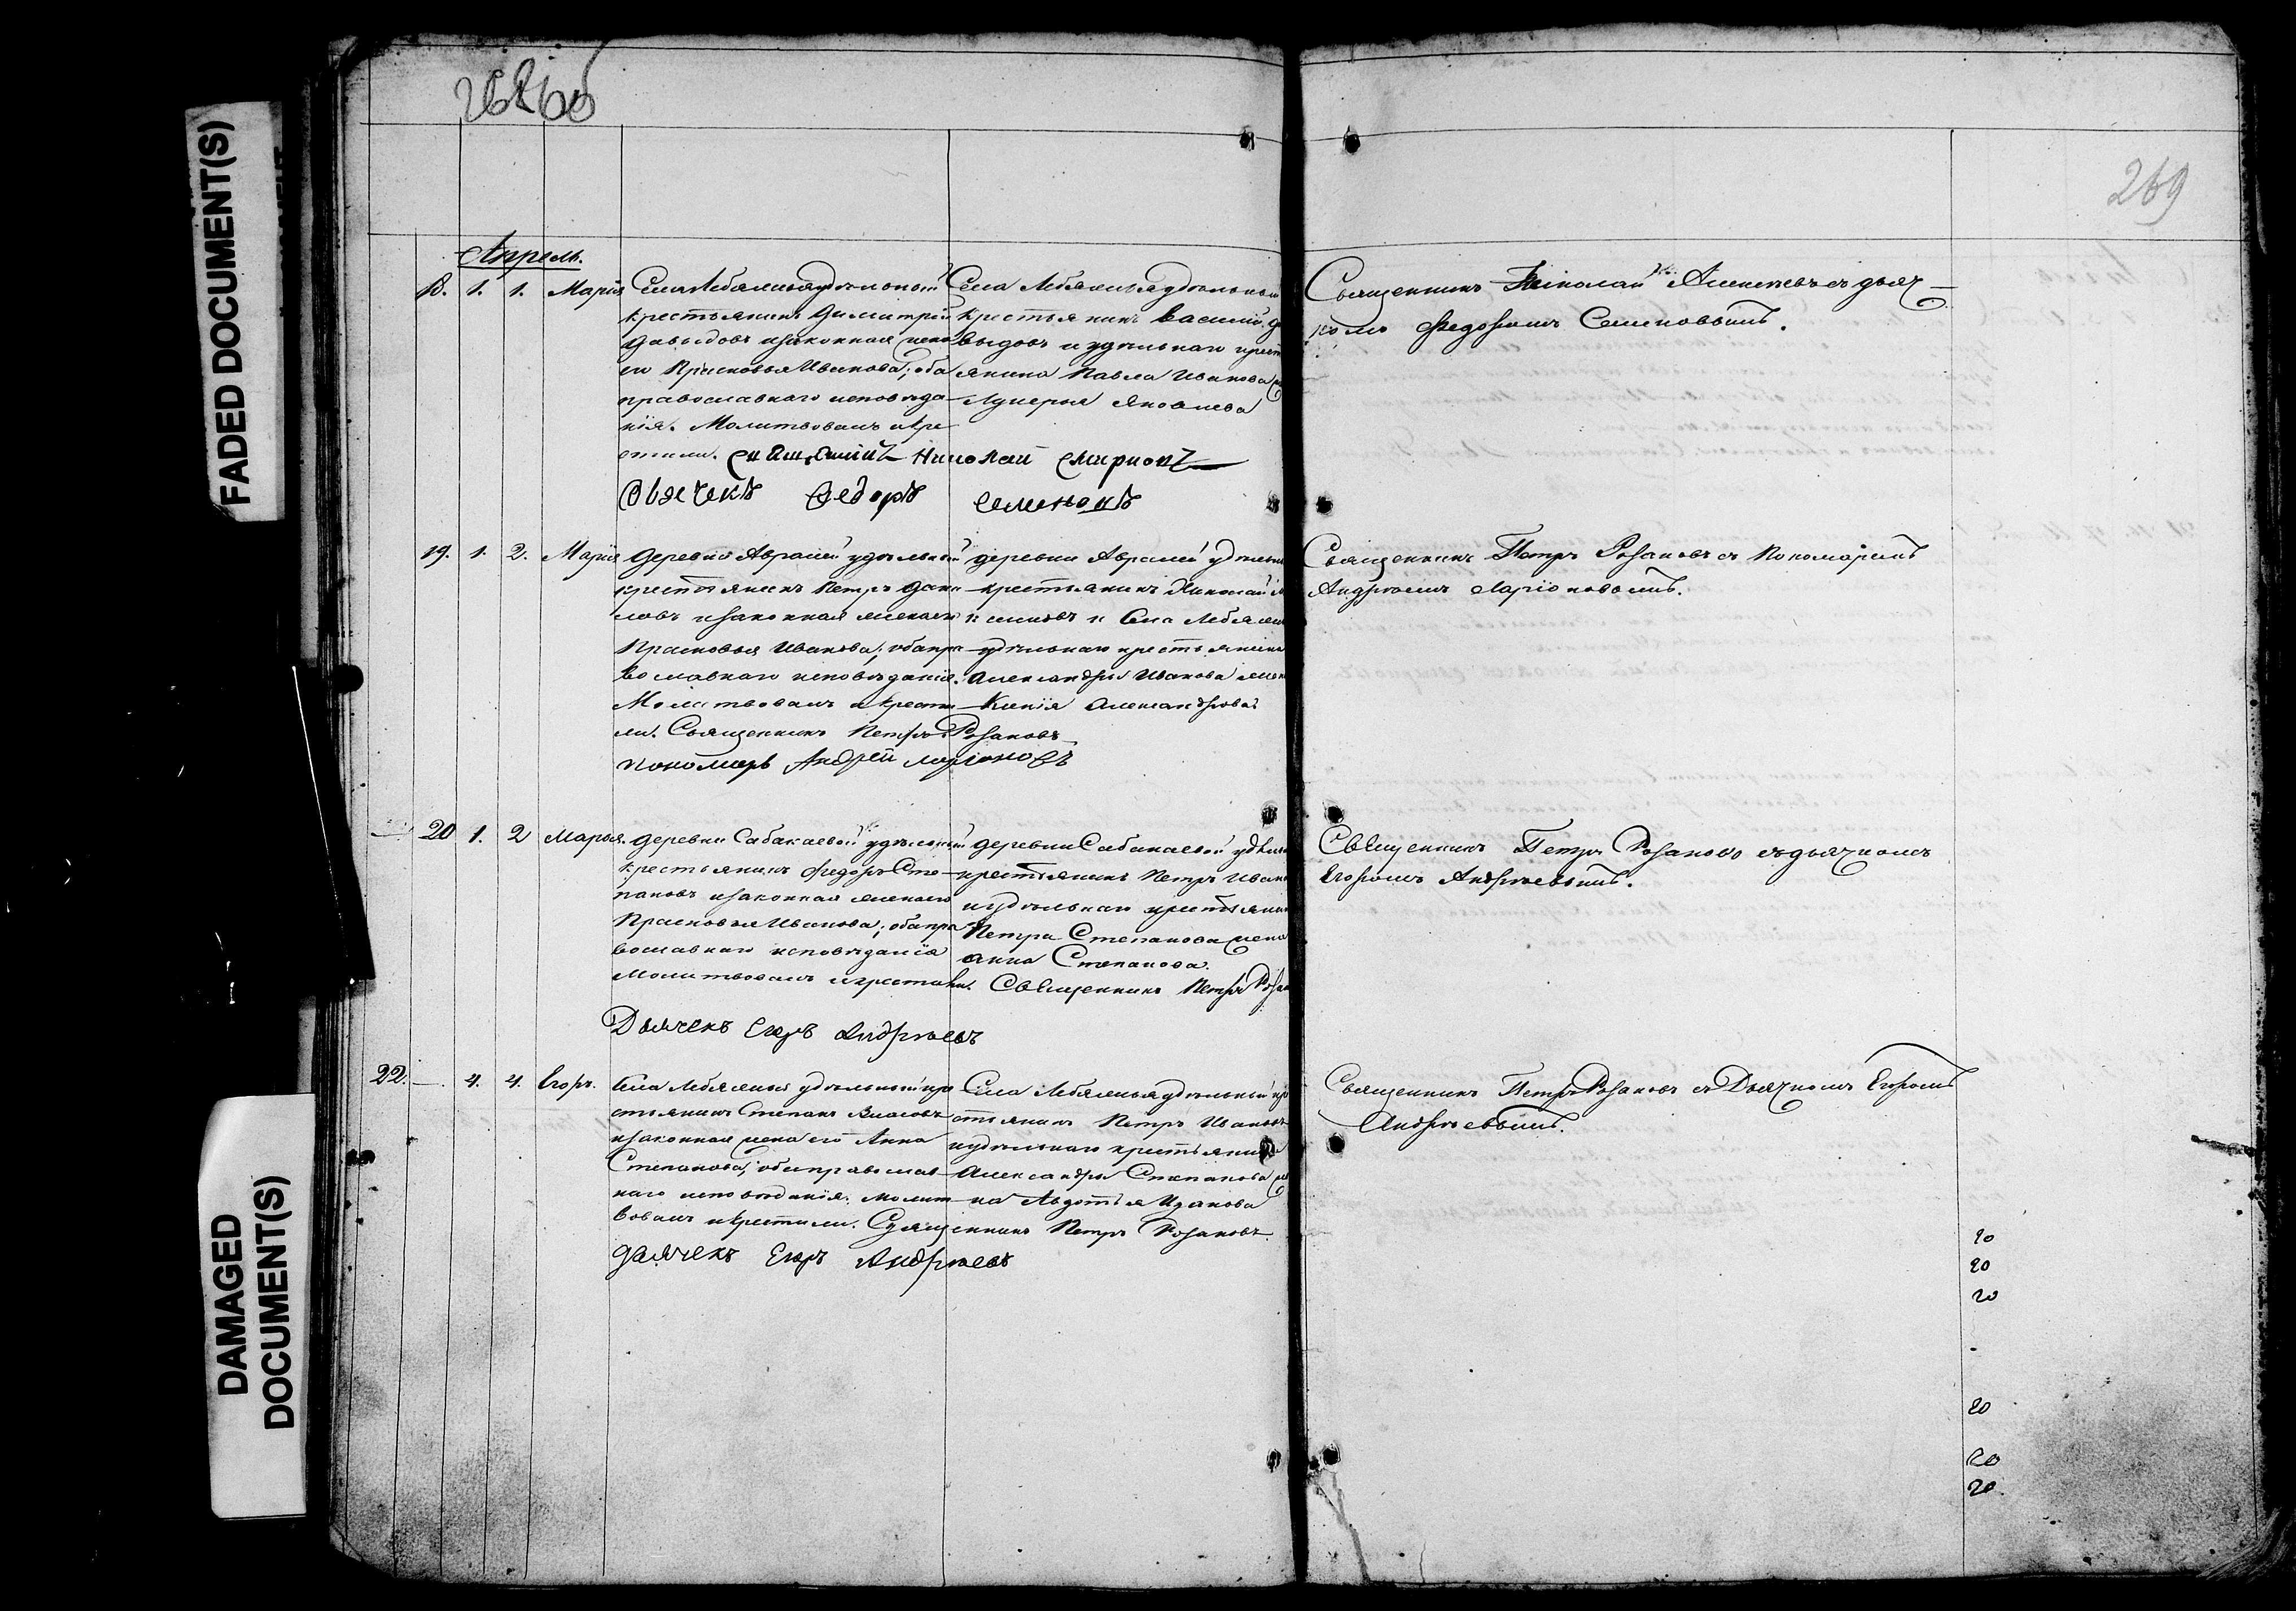 FADED DOCUMENT(S)
DAMAGED
DOCUMENT(S)
268об
269
Апрель.
18. 1. 1. Марія
Села Лебяжья удѣльный
крестьянинъ Димитрій
Давыдовъ и законная жена
его Прасковья Иванова; оба
православнаго исповѣда-
нія. Молитвовалъ и кре
стили. Священникъ Николай Смирновъ
Дьячекъ Ѳедоръ Семеновъ
Села Лебяжья удѣльной
крестьянинъ Василій Да
выдовъ и удѣльнаго крест
янина Павла Иванова
Лукерья Яковлева
Священникъ Николай съ дьяч-
комъ Ѳедоромъ Семеновымъ.
19. 1. 2. Марія
Деревни Авралей удѣльный
крестьянинъ Петръ Дани
ловъ и законная жена его
Прасковья Иванова; оба пра
вославнаго исповѣданія.
Молитвовалъ и крести
ли. Священникъ Петръ Розановъ
пономарь Андрей Ларіоновъ
деревни Авралей удѣльн
крестьянинъ Николай
и Села Лебяжья
удѣльнаго крестьянина
Александра Иванова жен
Ксенія Александрова.
Священникъ Петръ Розановъ съ Пономаремъ
Андреемъ Ларіоновымъ.
20 1. 2 Марья.
деревни Сабакаевой удѣльный
крестьянинъ Ѳедоръ Сте-
пановъ и законная жена его
Прасковья Иванова; оба пра
вославнаго исповѣданія
Молитвовалъ и крестили. Священникъ Петръ Роза
Дьячекъ Егоръ Андреевъ
деревни Сабакаевой удѣльн
крестьянинъ Петръ Ивано
и удѣльнаго крестьянин
Петра Степанова жена
Анна Степанова.
Священникъ Петръ Розановъ съ дьячкомъ
Егоромъ Андреевымъ.
22. —. 4. 4. Егоръ.
Села Лебяжья удѣльный кре
стьянинъ Степанъ Власовъ
и законная жена его Анна
Степанова; оба православ
наго исповѣданія. Молит
вовалъ и крестили. Священникъ Петръ Розановъ.
дьячекъ Егоръ Андреевъ
Села Лебяжья удѣльный кре
стьянинъ Петръ Ивановъ
и удѣльнаго крестьянина
Александра Степанова же
на Авдотья
Священникъ Петръ Розановъ съ Дьячкомъ Егоромъ
Андреевымъ.
20
20
20
20
20
20